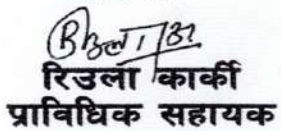 रिउला कार्की
प्राविधिक सहायक